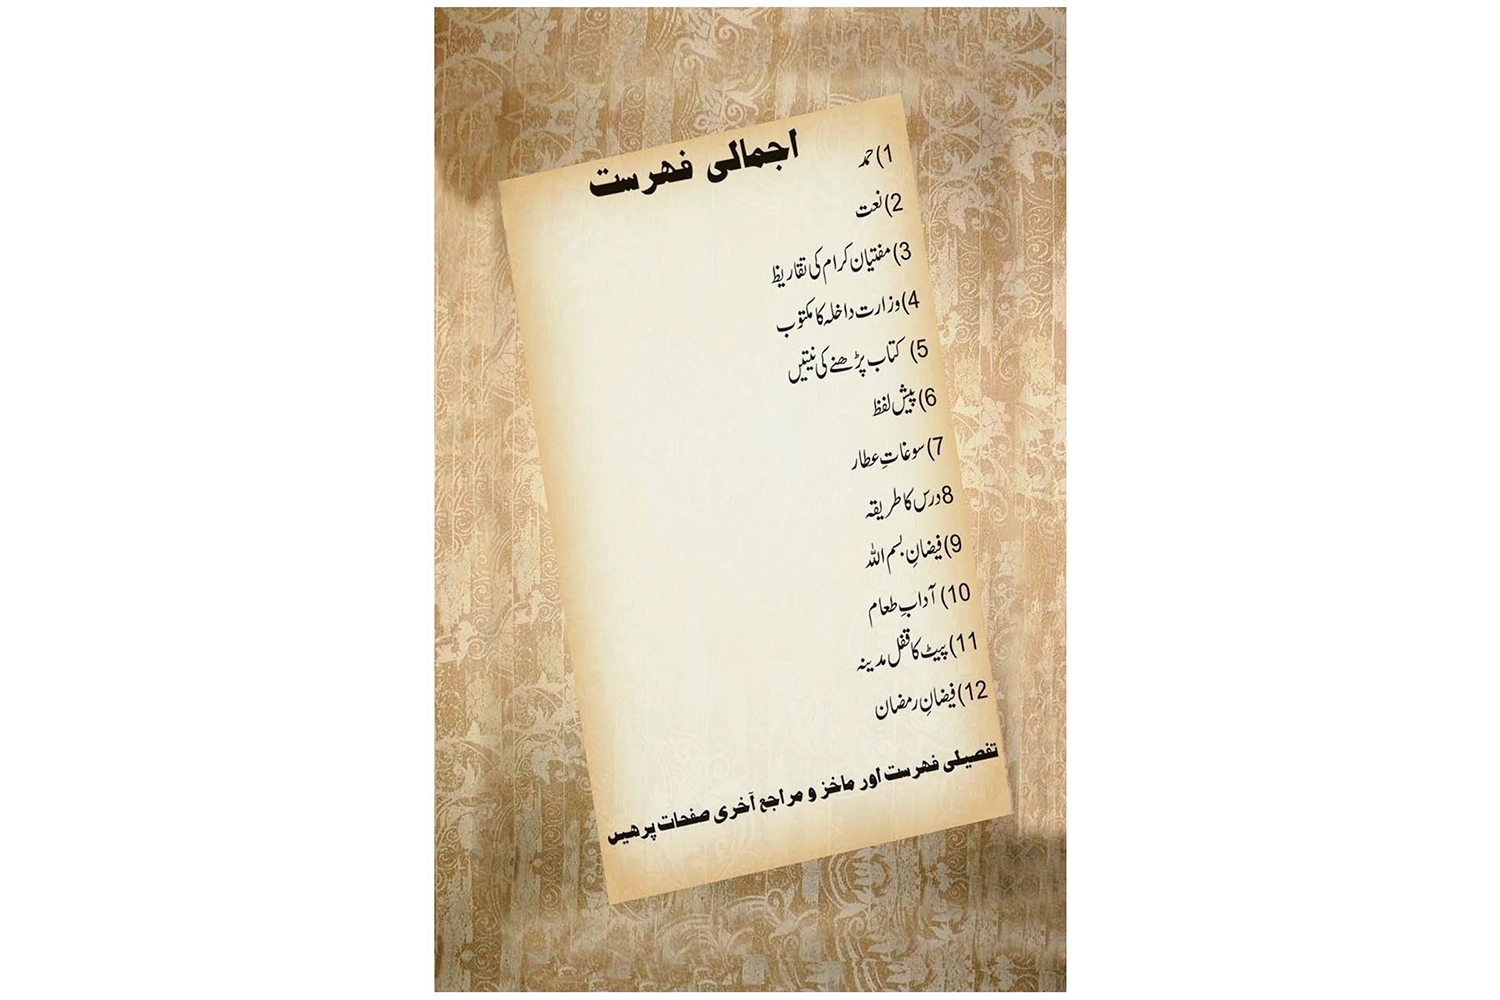 اجمالی فهرست
1) حمد
2) نعت
3) مفتیان کرام کی تقاریظ
4) وزارت داخلہ کا مکتوب
5) کتاب پڑھنے کی نیتیں
6) پیش لفظ
7) سوغاتِ عطار
8 درس کا طریقہ
9) فیضانِ بسم اللہ
10) آدابِ طعام
11) پیٹ کا قفل مدینہ
12) فیضانِ رمضان
تفصیلی فهرست اور ماخز و مراجع آخری صفحات پر هیں